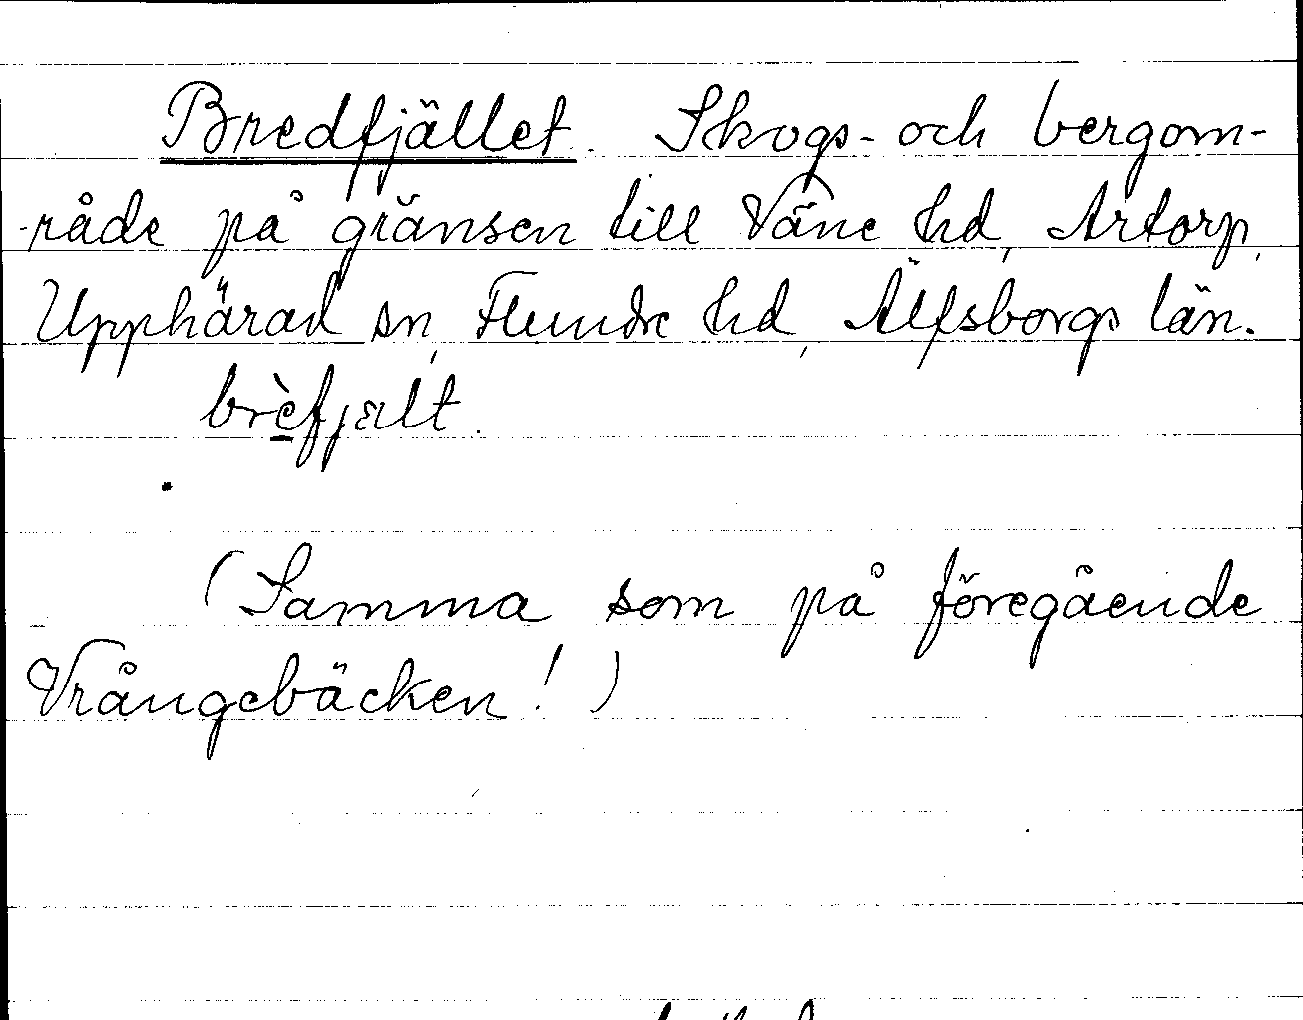 Bredfjället. Skogs- och bergom-
-råde på gränsen till Väne hd, Artorp,
Upphärad sn, Flundre hd, Älfsborgs län.
brèfjælt.
(Samma som på föregående
Vrångebäcken!)